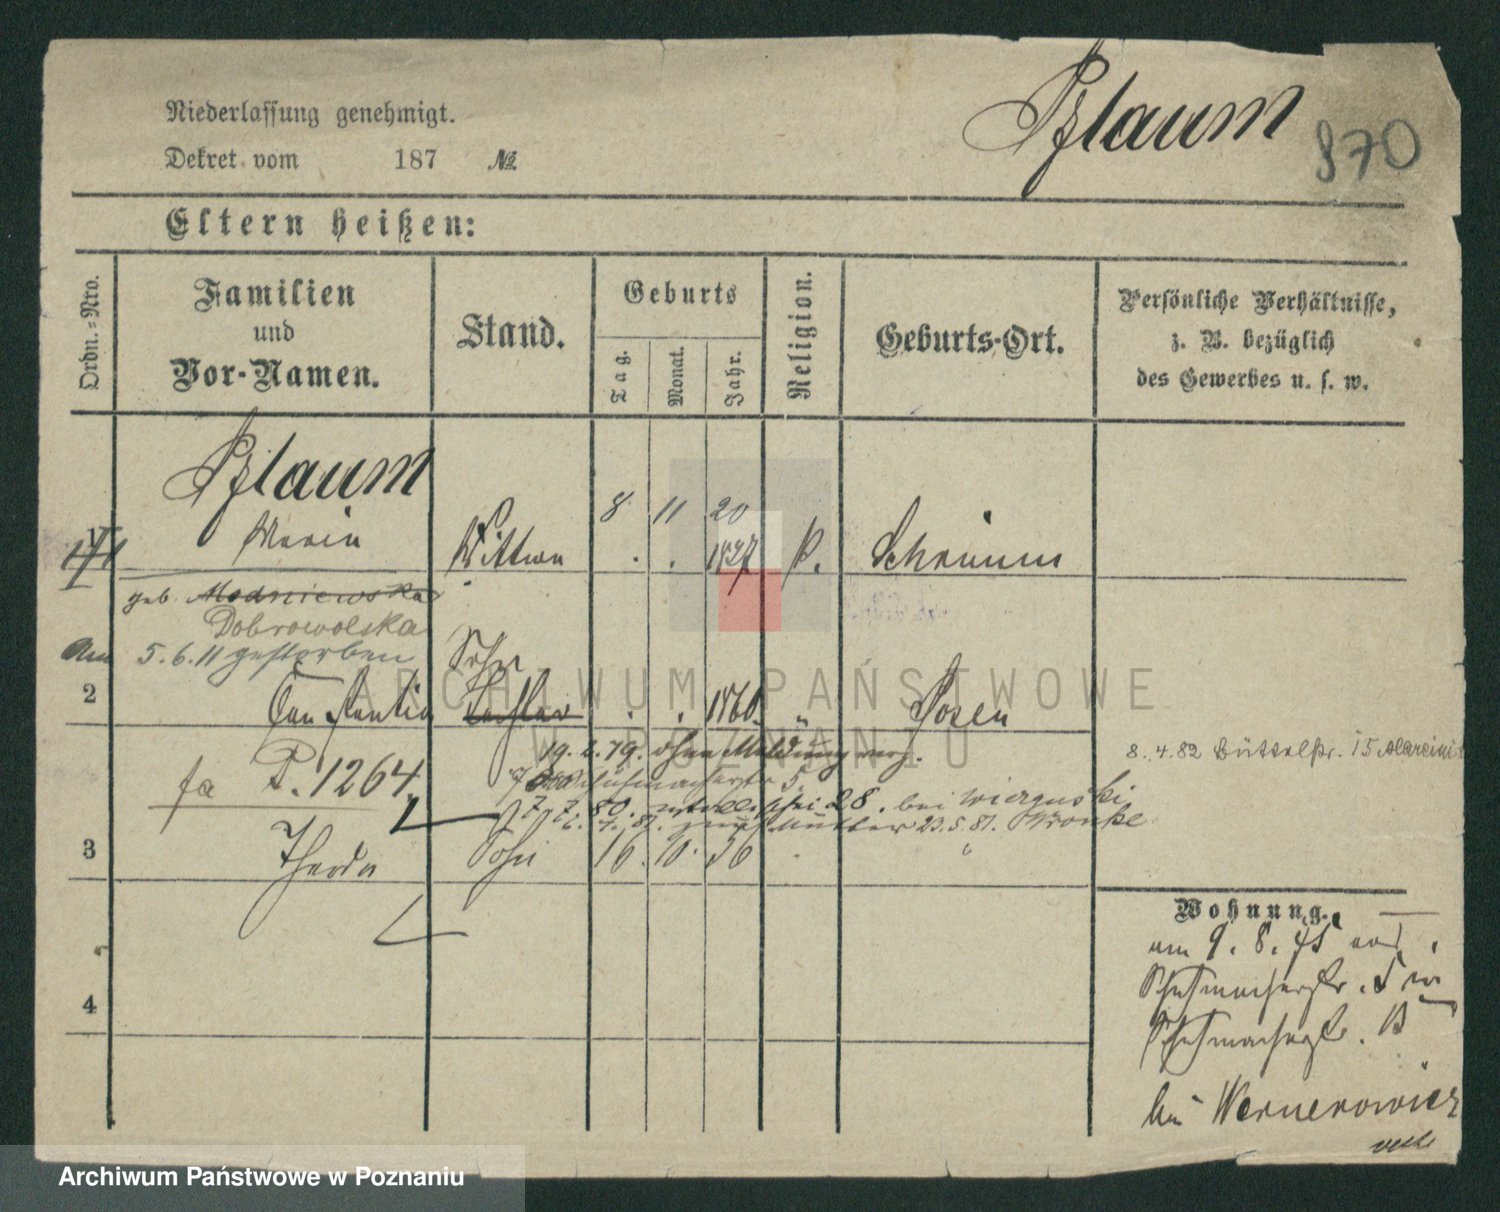 Niederlassung genehmigt.
Dekret vom 187 №
Pflaum
870
Eltern heißen:
Ordn.=Nro.
Familien
und
Vor-Namen.
Stand.
Geburts
Tag.
Monat.
Jahr.
Religion.
Geburts-Ort.
Persönliche Verhältnisse,
z. B. bezüglich
des Gewerbes u. s. w.
Pflaum
8 11 20
1
Maria Wittwe . . 1827 k. Schrimm
geb. Modniewska
Dobrowolska
Am 5.6.11 gestorben
Sohn
2 Constantin Tochter . . 1860. Posen
19.2.79. ohne Meldung verz.
8.4.82 Büttelstr. 15 Marcini
fa P. 1264
Schuhmacherstr 5.
7.7.80. 28. bei Wierzuski
zur Mutter 23.5.81. Wronke
3 Theodor Sohn 16. 10. 56 . "
4
Wohnung.
am 9. 8. 75 von
Schuhmacherstr. 5 in
Schuhmacherstr. 13
bei Wernerowicz
ARCHIWUM PAŃSTWOWE
W POZNANIU
Archiwum Państwowe w Poznaniu